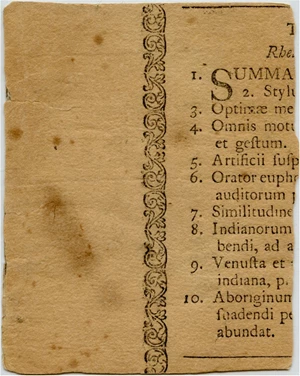 T
Rhe
1. SUMMA
2. Stylu
3. Optimæ me
4. Omnis motu
et geſtum.
5. Artificii ſuſp
6. Orator euph
auditorum p
7. Similitudine
8. Indianorum
bendi, ad a
9. Venuſta et
indiana, p.
10. Aboriginum
ſuadendi pe
abundat.